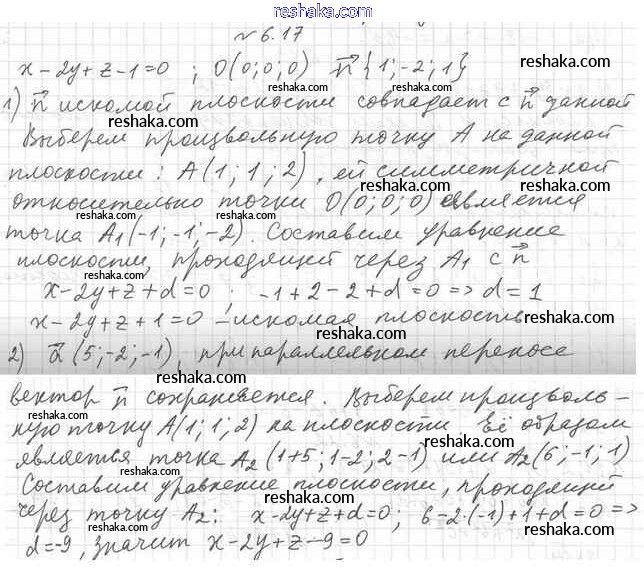 reshaka.com
№ 6.17
x - 2y + z - 1 = 0 ; O(0; 0; 0) n⃗ {1; -2; 1}
1) n⃗ искомой плоскости совпадает с n⃗ данной
Выберем произвольную точку A на данной
плоскости: A(1; 1; 2), ей симметричной
относительно точки O(0; 0; 0) является
точка A₁(-1; -1; -2). Составим уравнение
плоскости, проходящей через A₁ с n⃗
x - 2y + z + d = 0 ; -1 + 2 - 2 + d = 0 => d = 1
x - 2y + z + 1 = 0 - искомая плоскость
2) a⃗ (5; -2; -1), при параллельном переносе
вектор n⃗ сохраняется. Выберем произволь-
ную точку A(1; 1; 2) на плоскости. Её образом
является точка A₂(1+5; 1-2; 2-1) или A₂(6; -1; 1)
Составим уравнение плоскости, проходящей
через точку A₂: x - 2y + z + d = 0; 6 - 2·(-1) + 1 + d = 0 =>
d = -9, значит x - 2y + z - 9 = 0
reshaka.com